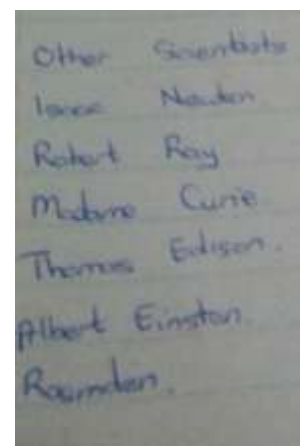 Other Scientists
Isaac Newton
Robert Ray
Madame Curie
Thomas Edison.
Albert Einston.